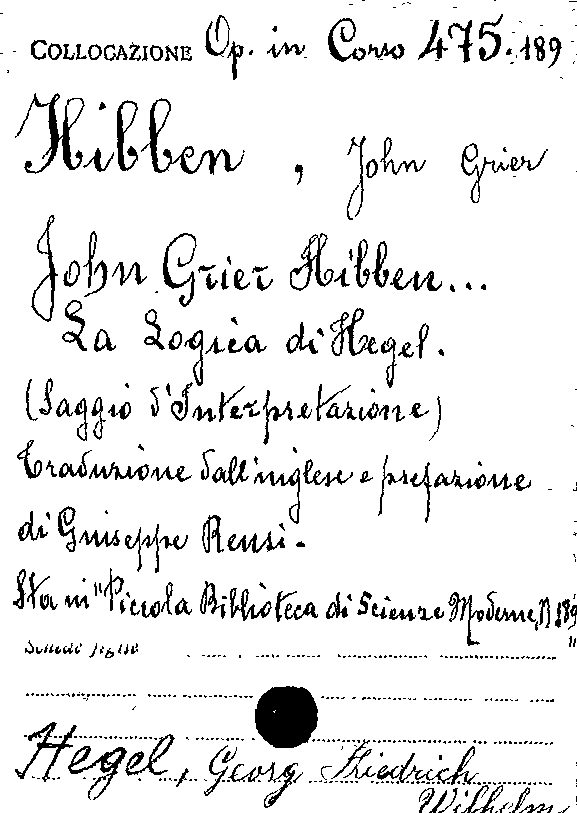 COLLOCAZIONE Op. in Corso 475.189
Hibben, John Grier
John Grier Hibben...
La Logica di Hegel.
(Saggio d'Interpretazione)
Traduzione dall'inglese e prefazione
di Giuseppe Rensi.
Sta in "Piccola Biblioteca di Scienze Moderne, N 189"
Schede figlie
Hegel, Georg Friedrich
Wilhelm